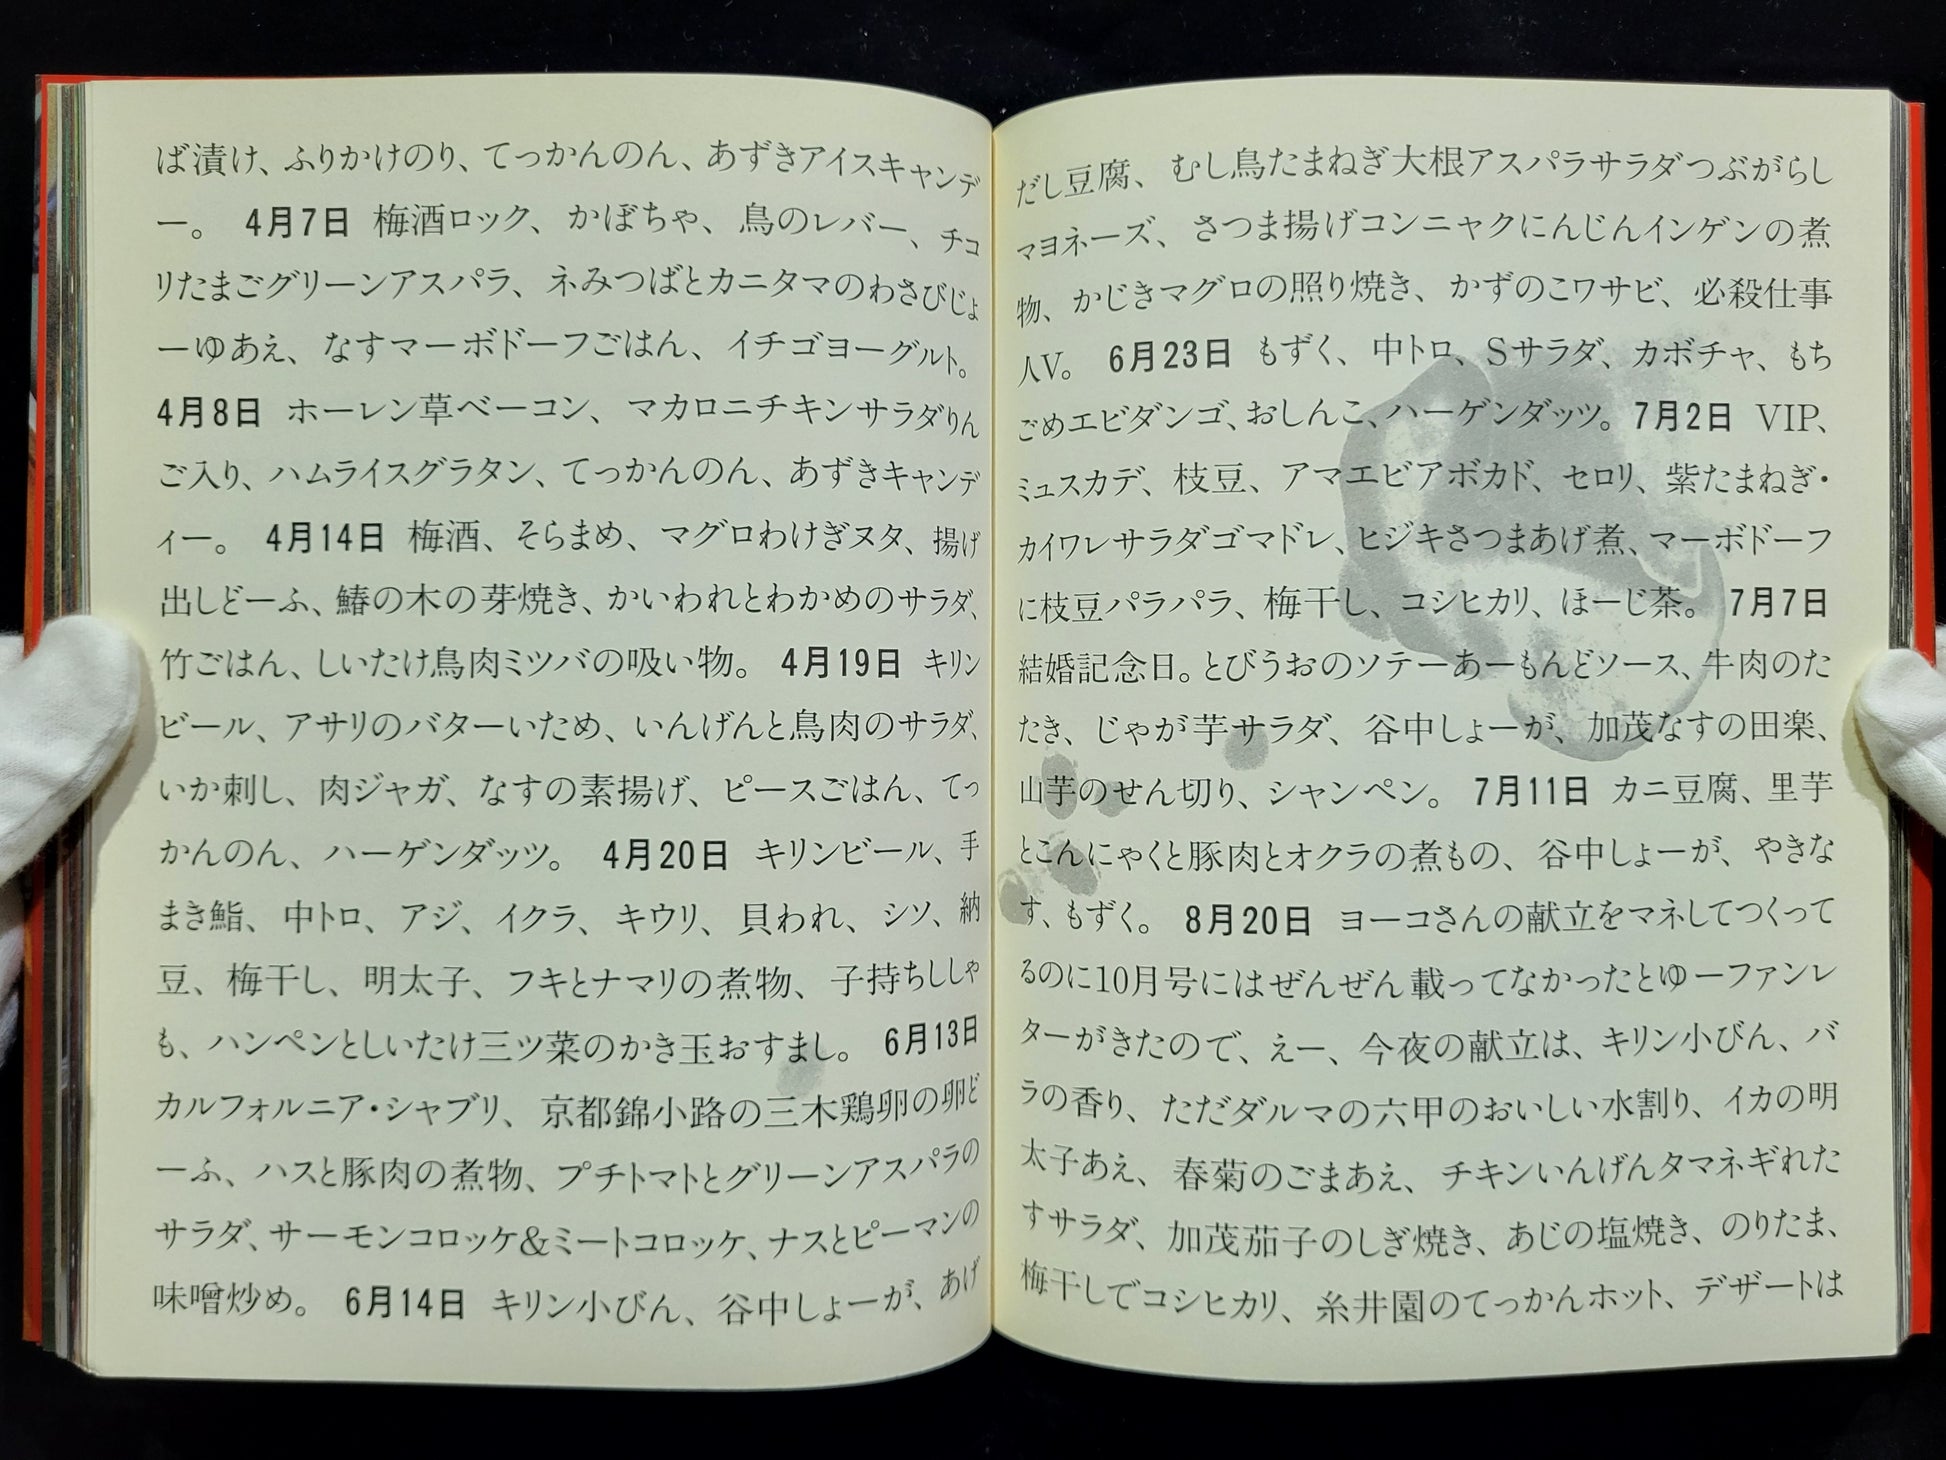 ば漬け、ふりかけのり、てっかんのん、あずきアイスキャンデ
ー。 4月7日 梅酒ロック、かぼちゃ、鳥のレバー、チコ
リたまごグリーンアスパラ、ネみつばとカニタマのわさびじょ
ーゆあえ、なすマーボドーフごはん、イチゴヨーグルト。
4月8日 ホーレン草ベーコン、マカロニチキンサラダりん
ご入り、ハムライスグラタン、てっかんのん、あずきキャンデ
ィー。 4月14日 梅酒、そらまめ、マグロわけぎヌタ、揚げ
出しどーふ、鰆の木の芽焼き、かいわれとわかめのサラダ、
竹ごはん、しいたけ鳥肉ミツバの吸い物。 4月19日 キリン
ビール、アサリのバターいため、いんげんと鳥肉のサラダ、
いか刺し、肉ジャガ、なすの素揚げ、ピースごはん、てっ
かんのん、ハーゲンダッツ。 4月20日 キリンビール、手
まき鮨、中トロ、アジ、イクラ、キウリ、貝われ、シソ、納
豆、梅干し、明太子、フキとナマリの煮物、子持ちししゃ
も、ハンペンとしいたけ三ツ菜のかき玉おすまし。 6月13日
カルフォルニア・シャブリ、京都錦小路の三木鶏卵の卵ど
ーふ、ハスと豚肉の煮物、プチトマトとグリーンアスパラの
サラダ、サーモンコロッケ&ミートコロッケ、ナスとピーマンの
味噌炒め。 6月14日 キリン小びん、谷中しょーが、あげ
だし豆腐、むし鳥たまねぎ大根アスパラサラダつぶがらし
マヨネーズ、さつま揚げコンニャクにんじんインゲンの煮
物、かじきマグロの照り焼き、かずのこワサビ、必殺仕事
人V。 6月23日 もずく、中トロ、Sサラダ、カボチャ、もち
ごめエビダンゴ、おしんこ、ハーゲンダッツ。 7月2日 VIP、
ミュスカデ、枝豆、アマエビアボカド、セロリ、紫たまねぎ・
カイワレサラダゴマドレ、ヒジキさつまあげ煮、マーボドーフ
に枝豆パラパラ、梅干し、コシヒカリ、ほーじ茶。 7月7日
結婚記念日。とびうおのソテーあーもんどソース、牛肉のた
たき、じゃが芋サラダ、谷中しょーが、加茂なすの田楽、
山芋のせん切り、シャンペン。 7月11日 カニ豆腐、里芋
とこんにゃくと豚肉とオクラの煮もの、谷中しょーが、やきな
す、もずく。 8月20日 ヨーコさんの献立をマネしてつくって
るのに10月号にはぜんぜん載ってなかったとゆーファンレ
ターがきたので、えー、今夜の献立は、キリン小びん、バ
ラの香り、ただダルマの六甲のおいしい水割り、イカの明
太子あえ、春菊のごまあえ、チキンいんげんタマネギれた
すサラダ、加茂茄子のしぎ焼き、あじの塩焼き、のりたま、
梅干しでコシヒカリ、糸井園のてっかんホット、デザートは